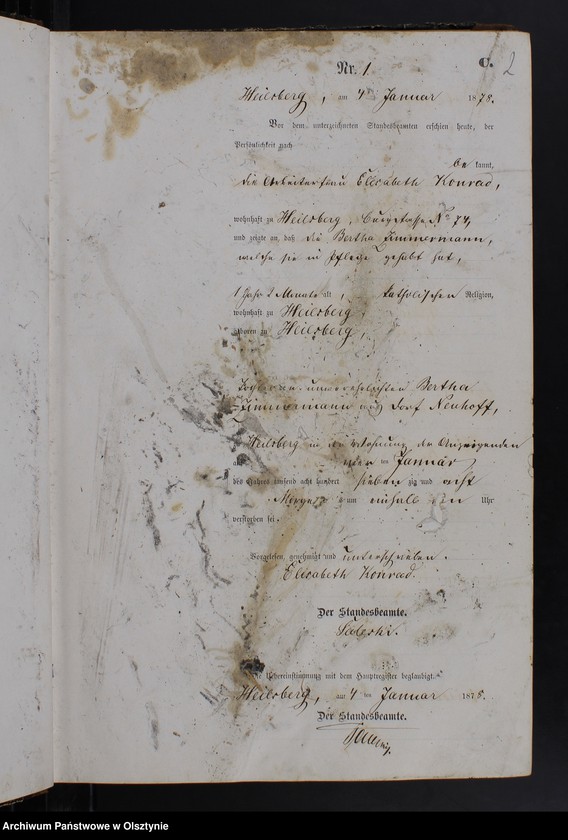 2
Nr. 1. C.
Heilsberg, am 4 ten Januar 1878.
Vor dem unterzeichneten Standesbeamten erschien heute, der
Persönlichkeit nach
be kannt,
die Arbeiterfrau Elisabeth Konrad,
wohnhaft zu Heilsberg, Burgstrasse No 74,
und zeigte an, daß die Bertha Zimmermann,
welche sie in Pflege gehabt hat,
1 Jahr 2 Monate alt, katholischen Religion,
wohnhaft zu Heilsberg,
geboren zu Heilsberg,
Tochter der unverehelichten Bertha
Zimmermann aus Dorf Neuhoff,
Heilsberg in der Wohnung der Anzeigenden
ten Januar
des Jahres tausend acht hundert sieben zig und acht
Morgens um Uhr
verstorben sei.
Vorgelesen, genehmigt und unterschrieben.
Elisabeth Konrad.
Der Standesbeamte.
Die Übereinstimmung mit dem Hauptregister beglaubigt.
Heilsberg, am 4 ten Januar 1878.
Der Standesbeamte.
Archiwum Państwowe w Olsztynie